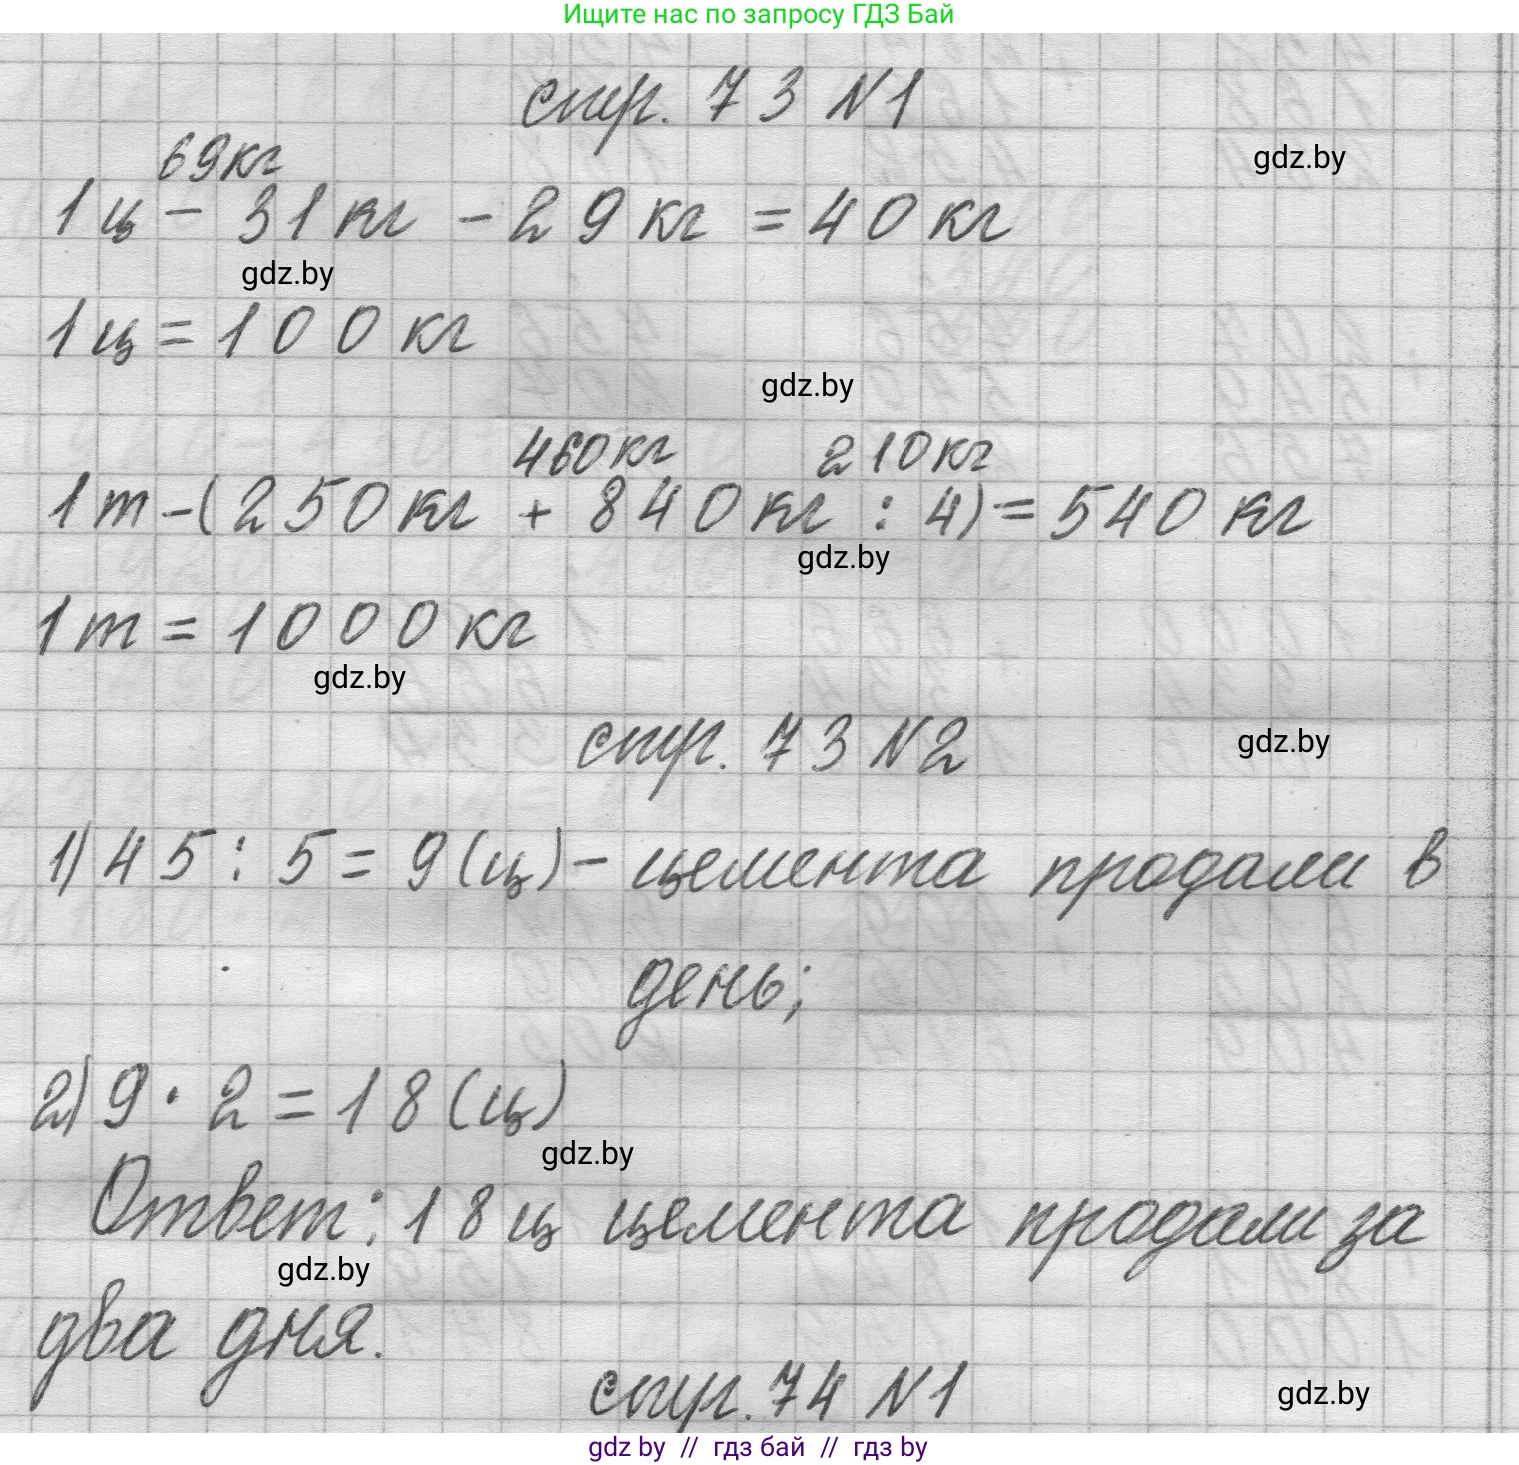 Ищите нас по запросу ГДЗ Бай
стр. 73 №1
gdz.by
69кг
1ц - 31кг - 29кг = 40кг
gdz.by
1ц = 100кг
gdz.by
460кг 210кг
1т - (250кг + 840кг : 4) = 540кг
gdz.by
1т = 1000кг
gdz.by
стр. 73 №2
gdz.by
1) 45 : 5 = 9 (ц) - цемента продали в
день;
2) 9 · 2 = 18 (ц)
gdz.by
Ответ: 18ц цемента продали за
gdz.by
два дня.
стр. 74 №1
gdz.by
gdz by // гдз бай // гдз by